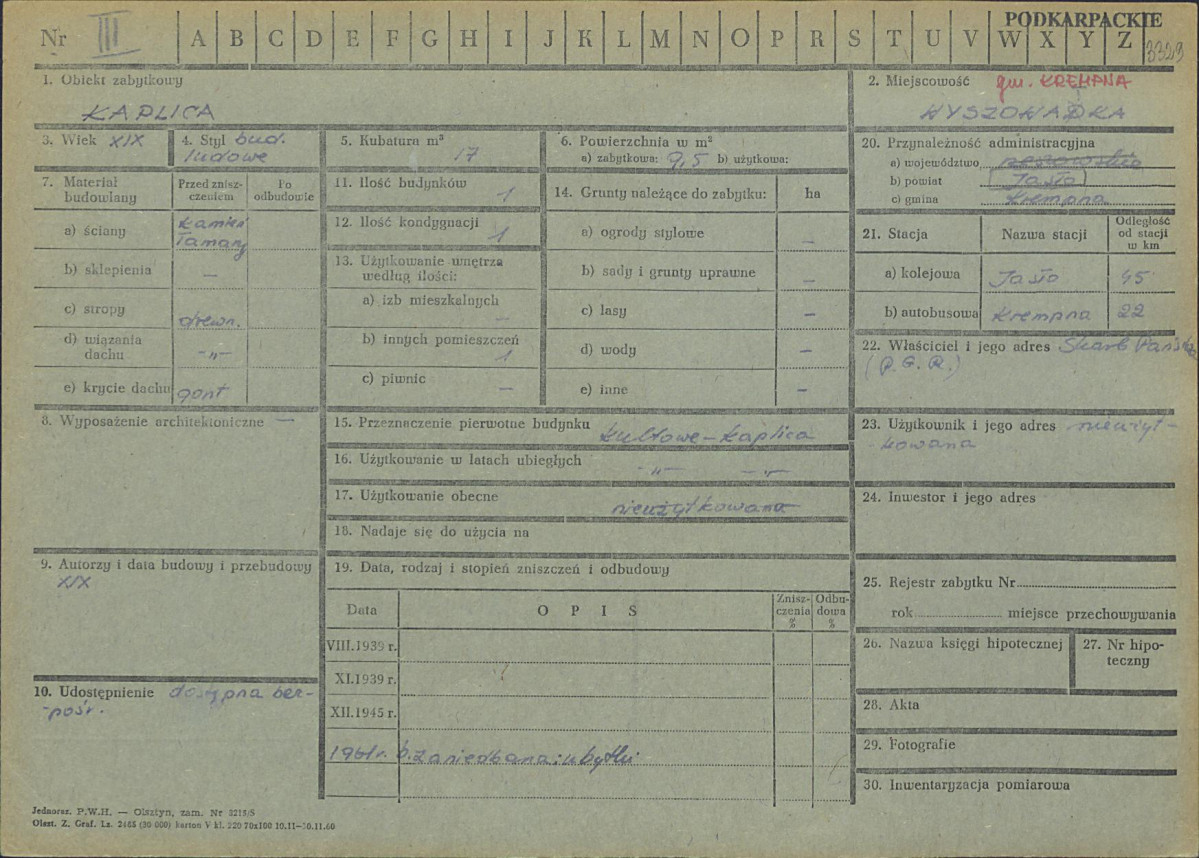 PODKARPACKIE
Nr III A B C D E F G H I J K L M N O P R S T U V W X Y Z 3329
1. Obiekt zabytkowy
KAPLICA
2. Miejscowość gm. KREMPNA
WYSZOWADKA
3. Wiek XIX
4. Styl bud.
ludowe
5. Kubatura m³
17
6. Powierzchnia w m²
a) zabytkowa: 9,5 b) użytkowa:
7. Materiał budowlany
Przed zniszczeniem
Po odbudowie
a) ściany kamień łamany
b) sklepienia —
c) stropy drewn.
d) wiązania dachu -„-
e) krycie dachu gont
8. Wyposażenie architektoniczne —
9. Autorzy i data budowy i przebudowy
XIX
10. Udostępnienie dostępna bez-
-pośr.
11. Ilość budynków
1
12. Ilość kondygnacji
1
13. Użytkowanie wnętrza
według ilości:
a) izb mieszkalnych
—
b) innych pomieszczeń
1
c) piwnic
—
14. Grunty należące do zabytku: ha
a) ogrody stylowe —
b) sady i grunty uprawne —
c) lasy —
d) wody —
e) inne —
15. Przeznaczenie pierwotne budynku
kultowe – kaplica
16. Użytkowanie w latach ubiegłych
-„- -„-
17. Użytkowanie obecne
nieużytkowana
18. Nadaje się do użycia na
19. Data, rodzaj i stopień zniszczeń i odbudowy
Data O P I S Zniszczenia % Odbudowa %
VIII.1939 r.
XI.1939 r.
XII.1945 r.
1961r. b. zaniedbana; ubytki
20. Przynależność administracyjna
a) województwo rzeszowskie
b) powiat Jasło
c) gmina Krempna
21. Stacja Nazwa stacji Odległość od stacji w km
a) kolejowa Jasło 45
b) autobusowa Krempna 22
22. Właściciel i jego adres Skarb Państwa
(P.G.R.)
23. Użytkownik i jego adres nieużyt-
-kowana
24. Inwestor i jego adres
25. Rejestr zabytku Nr
rok miejsce przechowywania
26. Nazwa księgi hipotecznej
27. Nr hipo-
teczny
28. Akta
29. Fotografie
30. Inwentaryzacja pomiarowa
Jednoraz. P.W.H. — Olsztyn, zam. Nr 2219/S
Olszt. Z. Graf. Lz. 2485 (30 000) karton V kl. 220 70x100 10.11—30.11.60